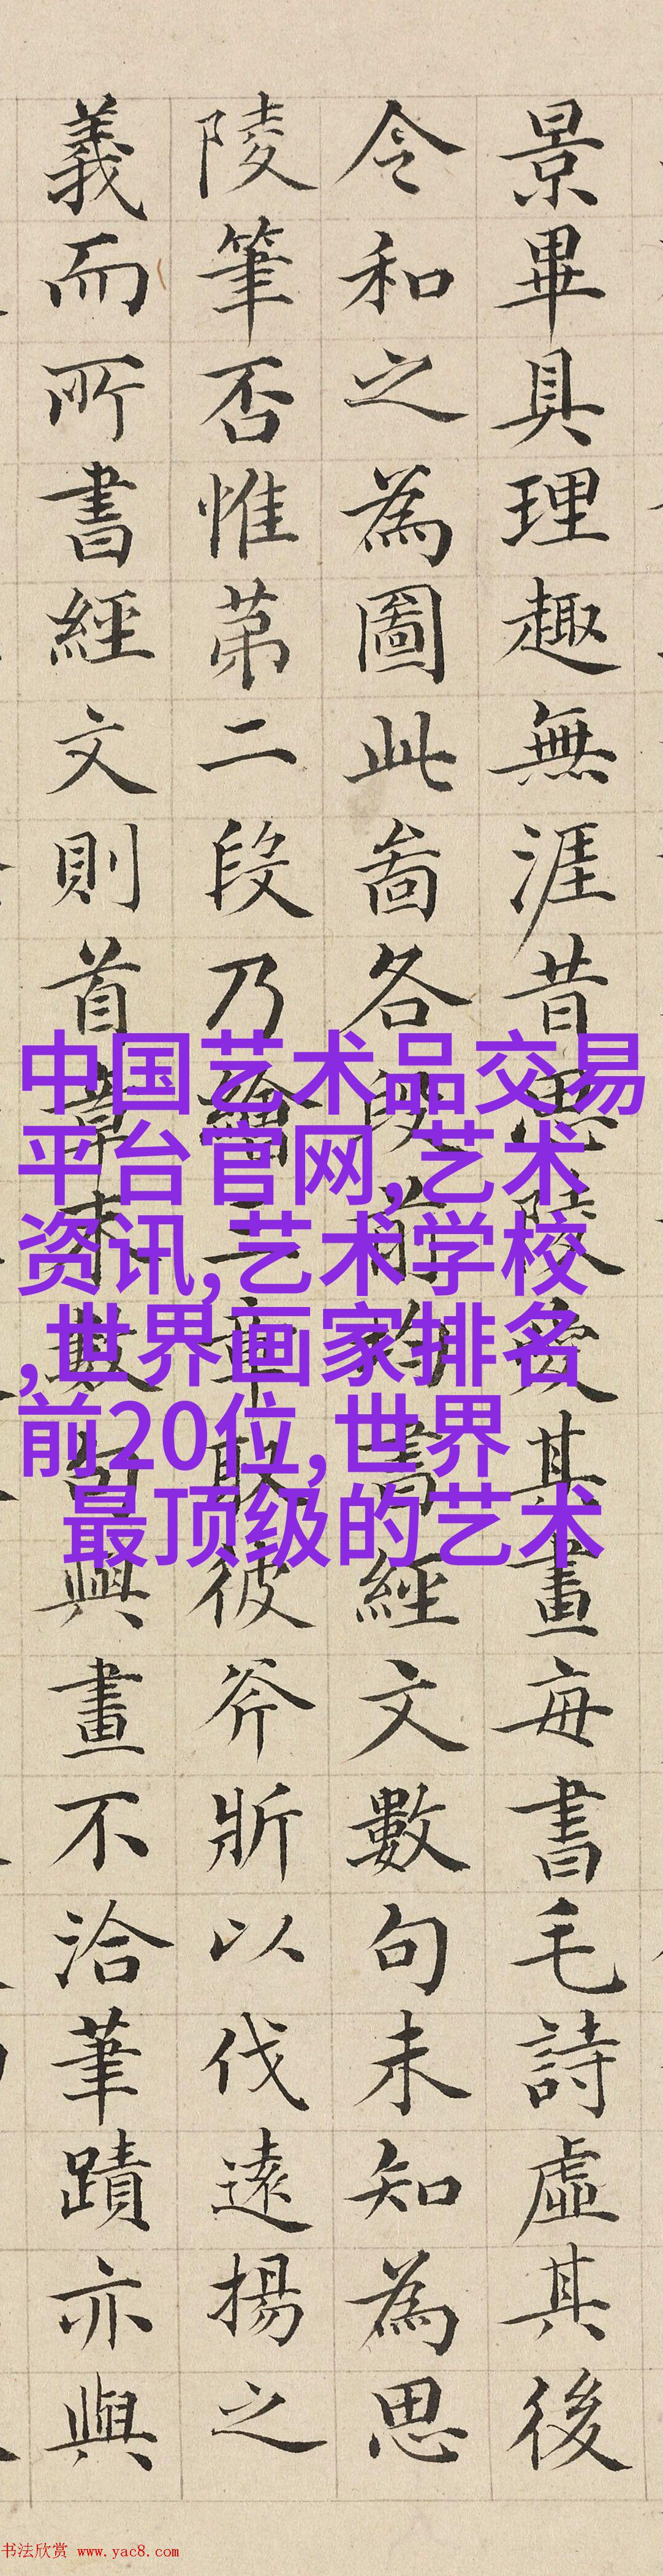 景畢具理趣無涯昔思陵愛其畫每書毛詩虛其後
令和之為圖此啚各段前均書經文數句未知為思
陵筆否惟苐二段乃繪三章取彼斧斨以伐逺揚之
義而所書經文則首章末數句與畫不洽筆蹟亦與
中国艺术品交易
平台官网,艺术
资讯,艺术学校
,世界画家排名
前20位,世界
最顶级的艺术
书法欣赏 www.yac8.com